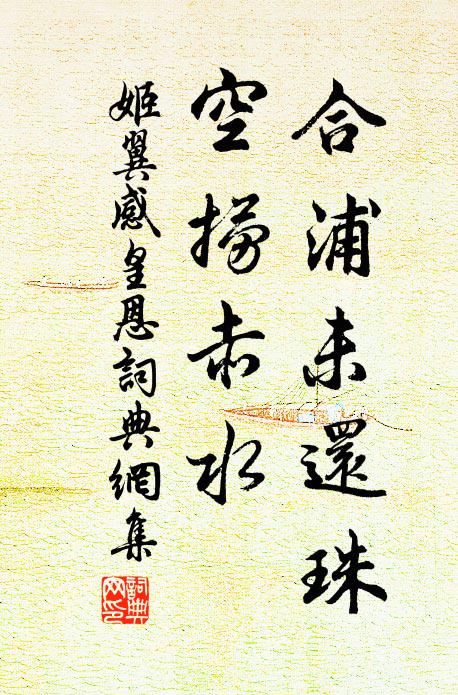 合浦未還珠
空撈赤水
姬翼感皇恩詞典網集
詞典網印